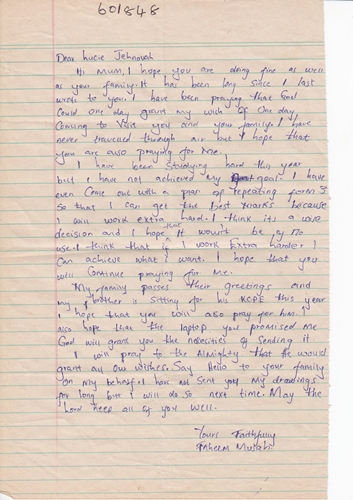 601848
Dear Lucie Jehnovah
Hi Mum, I hope you are doing fine as well
as your family. It has been long since I last
wrote to you. I have been praying that God
could one day grant my wish of one day
coming to visit you and your family. I have
never travelled through air but I hope that
you are also praying for me.
I have been studying hard this year
but I have not achieved my goal. I have
even come out with a plan of repeating form 3
so that I can get the best marks because
I will work extra hard. I think its a wise
decision and I hope that It won't be of no
use. I think that if I work Extra harder I
can achieve what I want. I hope that you
will continue praying for me.
My family passes their greetings and
my brother is sitting for his KCPE this year
I hope that you will also pray for him. I
also hope that the laptop you promised me
God will grant you the necessities of sending it
I will pray to the Almighty that he would
grant all our wishes. Say Hello to your family
on my behalf. I have not sent you my drawings
for long but I will do so next time. May the
Lord keep all of you well.
Yours Faithfully